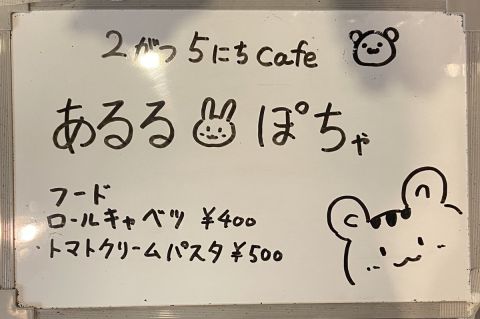 2がつ5にちcafe
あるる ぽちゃ
フード
ロールキャベツ ¥400
トマトクリームパスタ ¥500